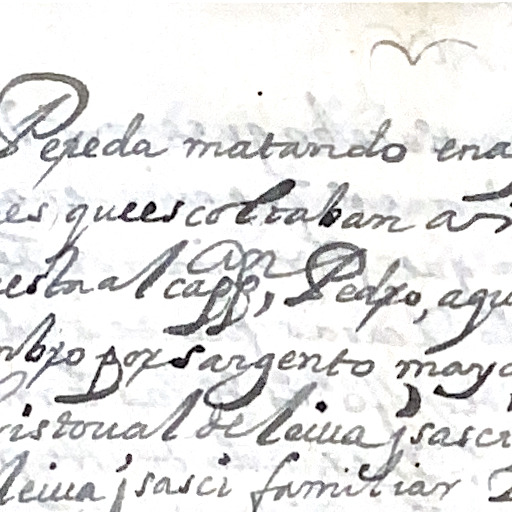 Pepeda matando ena
es quees coltaban a
estra al capp.an Pedro, aqu
mbro por sargento mayo
ristoual de leiua j sasci
leiua j sasci familiar